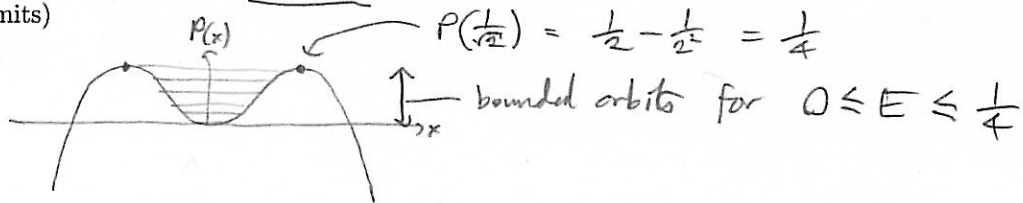 nits)
P(x)
P(1/√2) = 1/2 - 1/2² = 1/4
bounded orbits for 0 ≤ E ≤ 1/4
x